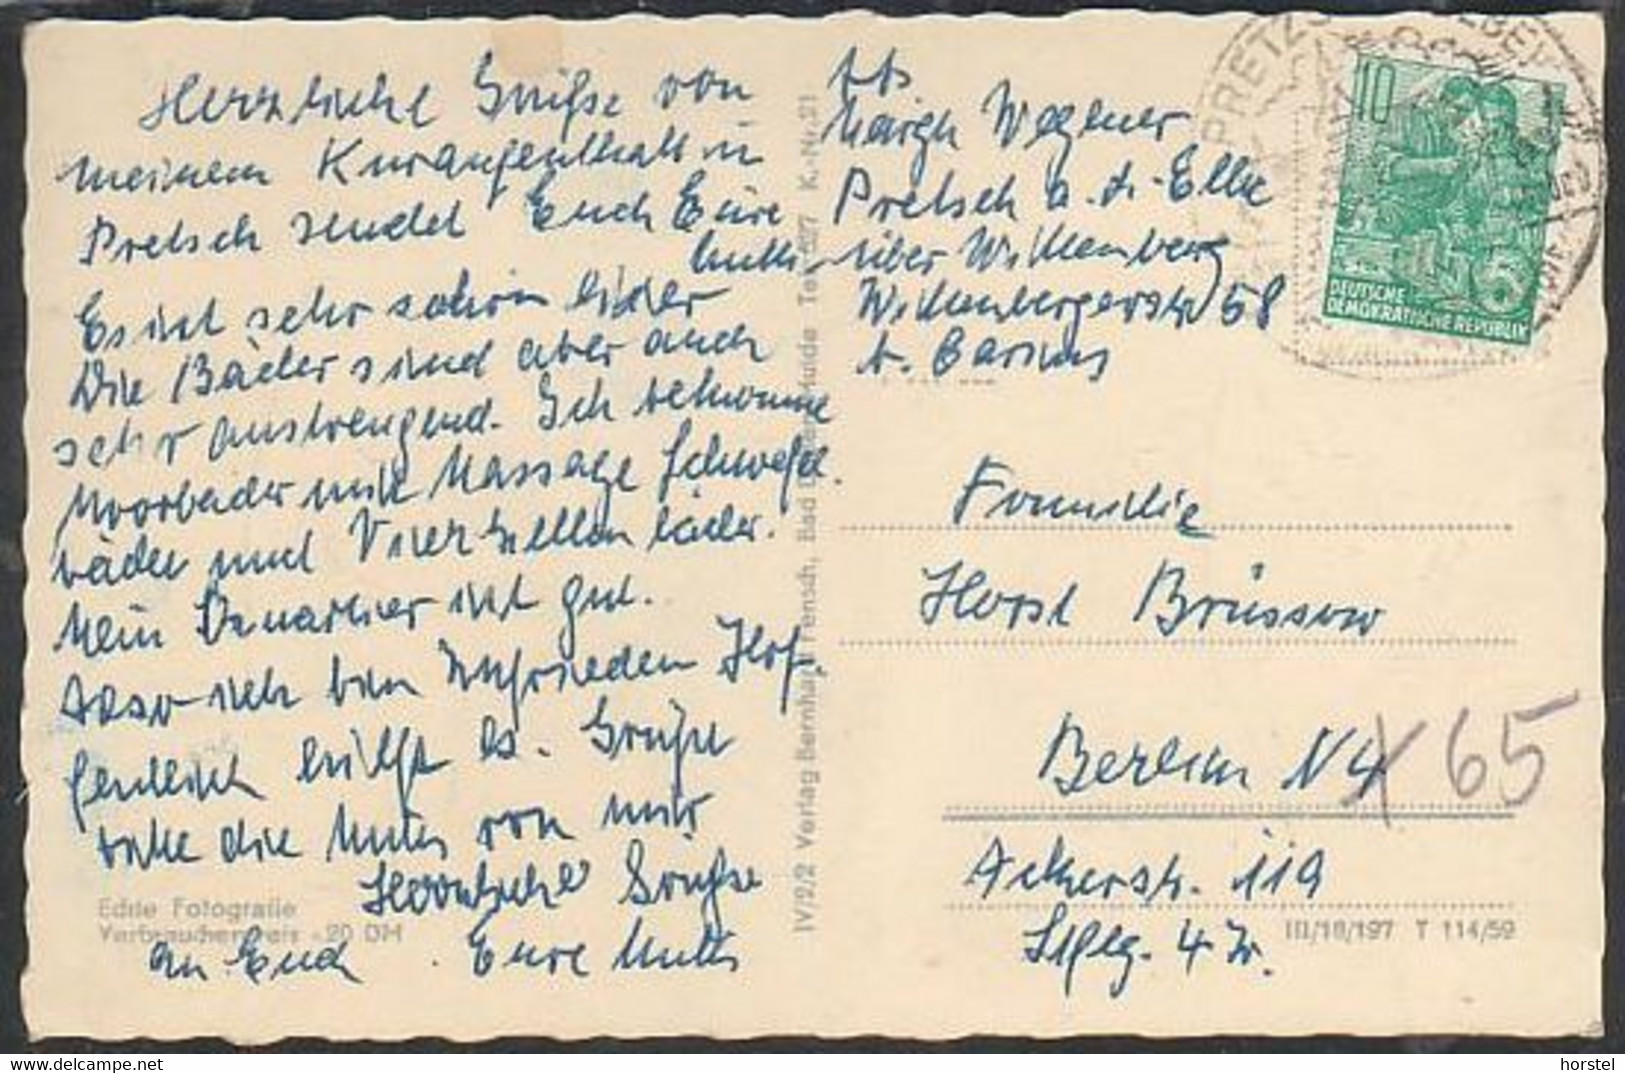 Herzliche Grüße von
meinem Kuraufenthalt in
Pretsch sendet Euch Eure
Mutti.
Es ist sehr schön hier
Die Bäder sind aber auch
sehr anstrengend. Ich bekomme
Moorbäder mit Massage Schwefel
bäder und Vierzellenbäder.
Mein Quartier ist gut.
Also ich bin zufrieden Hof
fentlich hilft es. Grüße
bitte die Mutti von mir
Herzliche Grüße
an Euch. Eure Mutti
Echte Fotografie
Verbraucherpreis -.20 DM
IV/2/2 Verlag Bernhard Fensch, Bad K.-Nr. 21
Abs
Margh Wegener
Pretsch a. d. Elbe
über Wittenberg
Wittenbergerstr 58
b.
PRETZSCH
10
DEUTSCHE
DEMOKRATISCHE REPUBLIK
Familie
Horst Brüssow
Berlin N4 65
Ackerstr. 119
Stflg. 4 Tr.
III/18/197 T 114/59
hipster.net